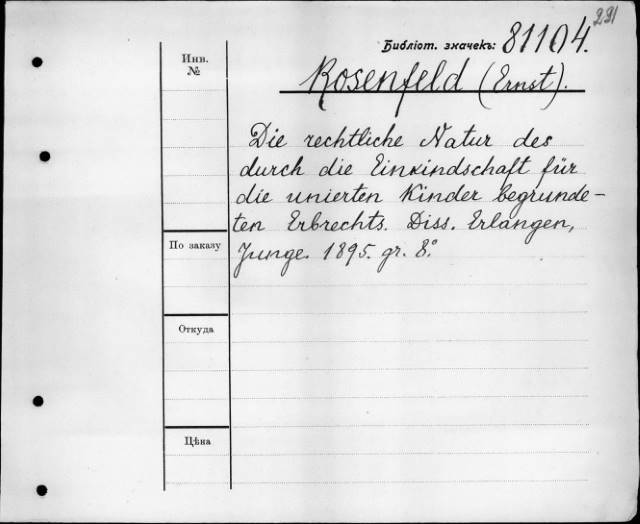 221
Библіот. значекъ: 81104.
Инв.
№
Rosenfeld (Ernst).
Die rechtliche Natur des
durch die Einkindschaft für
die unierten Kinder begrunde-
ten Erbrechts. Diss. Erlangen,
Junge. 1895. gr. 8º.
По заказу
Откуда
Цѣна